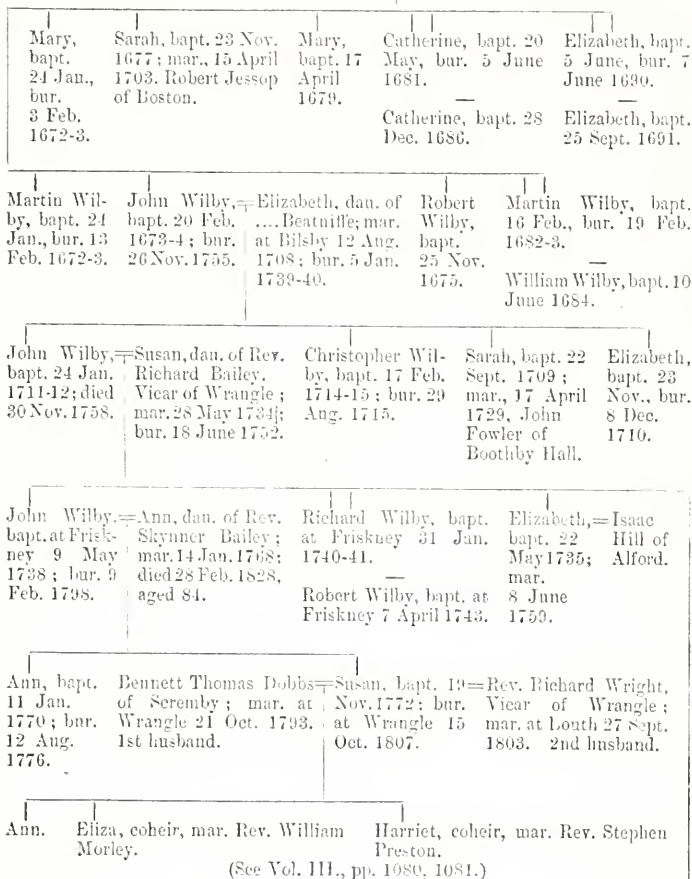 Mary,
bapt.
24 Jan.,
bur.
3 Feb.
1672-3.
Sarah, bapt. 23 Nov.
1677; mar., 15 April
1703. Robert Jessop
of Boston.
Mary,
bapt. 17
April
1679.
Catherine, bapt. 20
May, bur. 5 June
1681.
—
Catherine, bapt. 28
Dec. 1686.
Elizabeth, bapt.
5 June, bur. 7
June 1690.
—
Elizabeth, bapt.
25 Sept. 1691.
Martin Wil-
by, bapt. 24
Jan., bur. 13
Feb. 1672-3.
John Wilby,=
bapt. 20 Feb.
1673-4; bur.
26 Nov. 1755.
Elizabeth, dau. of
....Beatniffe; mar.
at Bilsby 12 Aug.
1708; bur. 5 Jan.
1739-40.
Robert
Wilby,
bapt.
25 Nov.
1675.
Martin Wilby, bapt.
16 Feb., bur. 19 Feb.
1682-3.
—
William Wilby, bapt. 10
June 1684.
John Wilby,=
bapt. 24 Jan.
1711-12; died
30 Nov. 1758.
Susan, dau. of Rev.
Richard Bailey,
Vicar of Wrangle;
mar. 28 May 1734;
bur. 18 June 1752.
Christopher Wil-
by, bapt. 17 Feb.
1714-15; bur. 29
Aug. 1715.
Sarah, bapt. 22
Sept. 1709;
mar., 17 April
1729, John
Fowler of
Boothby Hall.
Elizabeth,
bapt. 23
Nov., bur.
8 Dec.
1710.
John Wilby.=
bapt. at Frisk-
ney 9 May
1738; bur. 9
Feb. 1798.
Ann, dau. of Rev.
Skynner Bailey;
mar. 14 Jan. 1768;
died 28 Feb. 1828,
aged 84.
Richard Wilby, bapt.
at Friskney 31 Jan.
1740-41.
—
Robert Wilby, bapt. at
Friskney 7 April 1743.
Elizabeth,=
bapt. 22
May 1735;
mar.
8 June
1759.
Isaac
Hill of
Alford.
Ann, bapt.
11 Jan.
1770; bur.
12 Aug.
1776.
Bennett Thomas Dobbs=
of Scremby; mar. at
Wrangle 21 Oct. 1793.
1st husband.
Susan, bapt. 19=
Nov. 1772; bur.
at Wrangle 15
Oct. 1807.
Rev. Richard Wright,
Vicar of Wrangle;
mar. at Louth 27 Sept.
1803. 2nd husband.
Ann.
Eliza, coheir, mar. Rev. William
Morley.
Harriet, coheir, mar. Rev. Stephen
Preston.
(See Vol. III., pp. 1080, 1081.)